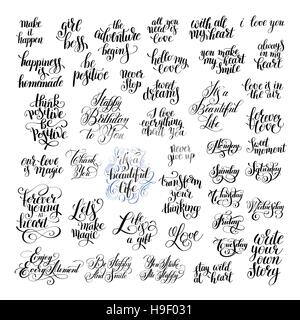 make
it
happen
girl
boss
the
adventure
begins
all you
need is
love
with all
my heart
i love you
happiness
is
homemade
be
positive
never
Stop
hello my
love
you make
my heart
Smile
always
in my
heart
sweet
dreams
love is in the
air
think
positive
be
positive
Happy
Birthday
to You
I love
everything
about you
It's a
Beautiful
Life
forever
love
our love
is magic
Thank
You
it's a
beautiful
life
never
give up
Monday
Sunday
Sweet
moment
Friday
Saturday
forever
young
at
heart
Let's
make
magic
Life
is
a gift
transform
your
thinking
Thursday
Wednesday
Tuesday
Love
Enjoy
Every Moment
Be Happy
And Smile
You Make
Me Happy
stay wild
at heart
write
your
own
story
alamy
Image ID: H9F031
www.alamy.com